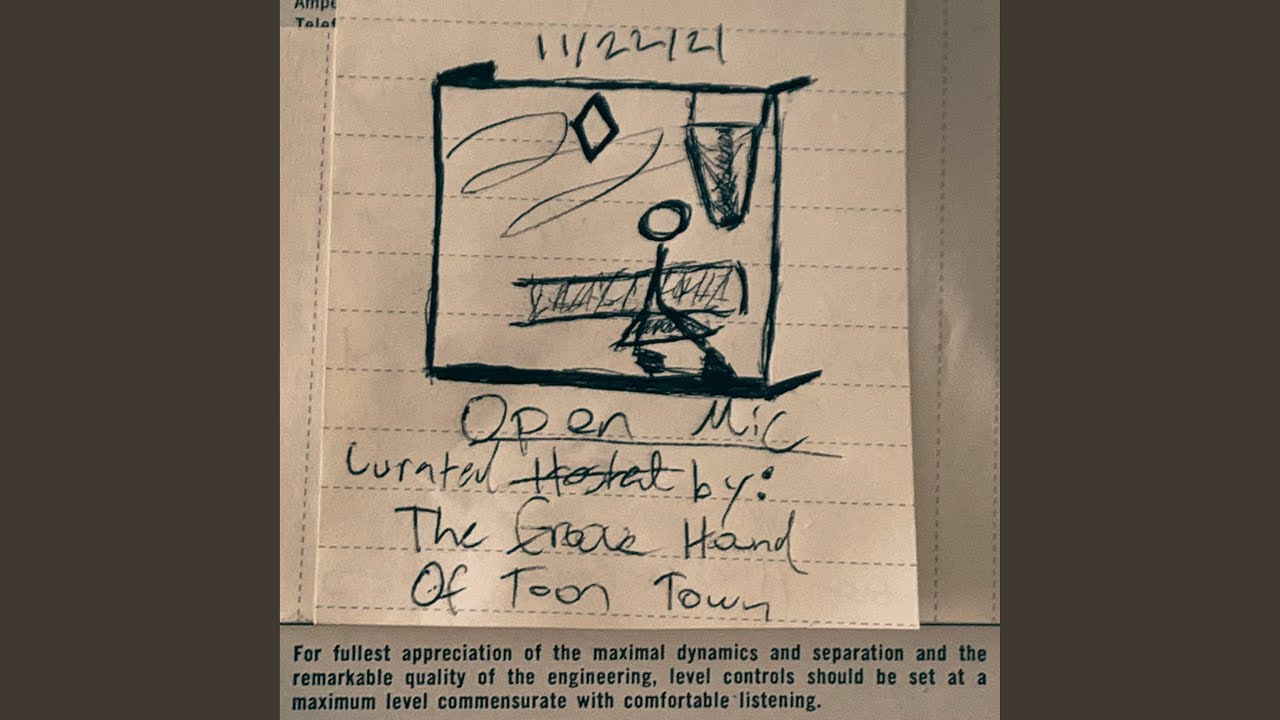 Ampe
Telef
11/22/21
Open Mic
Curated Hosted by:
The Groove Hand
Of Toon Town
For fullest appreciation of the maximal dynamics and separation and the
remarkable quality of the engineering, level controls should be set at a
maximum level commensurate with comfortable listening.